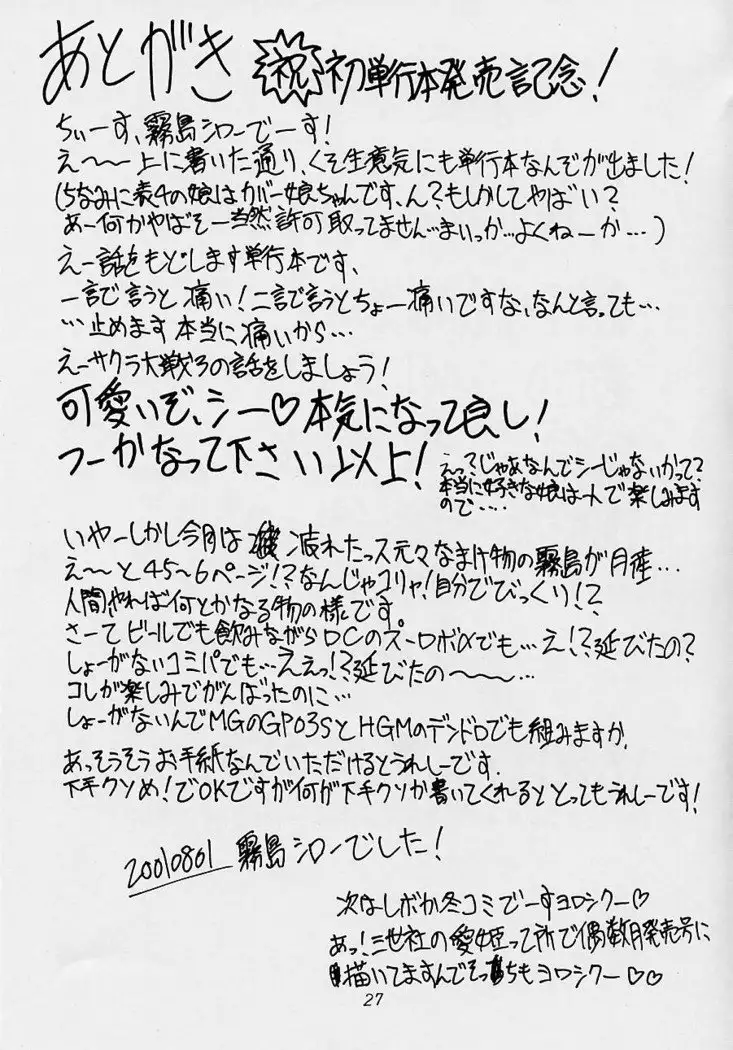 あとがき 祝 初単行本発売記念!
ちぃーす、霧島シローでーす!
え〜〜上に書いた通り、くそ生意気にも単行本なんぞが出ました!
(ちなみに表4の娘はカバー娘ちゃんです、ん?もしかしてやばい?
あー何かやばそー当然許可取ってません…まいっか…よくねーか…)
えー話をもどします単行本です、
一言で言うと痛い!二言で言うとちょー痛いですな、なんと言っても…
…止めます本当に痛いから…
えーサクラ大戦3の話をしましょう!
可愛いぞ、シー♡本気になって良し!
つーかなって下さい以上!
えっ?じゃあなんでシーじゃないかって?
本当に好きな娘は一人で楽しみます
ので…‥
いやーしかし今月は 疲れたっス元々なまけ物の霧島が月産…
え〜と45〜6ページ!?なんじゃコリャ!自分でびっくり!?
人間やれば何とかなる物の様です。
さーてビールでも飲みながらDCのスーロボαでも…え!?延びたの?
しょーがないコミパでも…ええっ!?延びたの〜〜〜…
コレが楽しみでがんばったのに…
しょーがないんでMGのGP03SとHGMのデンドロでも組みますか、
あっそうそうお手紙なんていただけるとうれしーです.
下手クソめ!でOKですが何が下手クソか書いてくれるととってもうれしーです!
20010801 霧島シローでした!
次なしボか冬コミでーすヨロシクー♡
あっ!三世社の愛姫って所で偶数月発売号に
描いてますんでそっちもヨロシクー♡♡
27